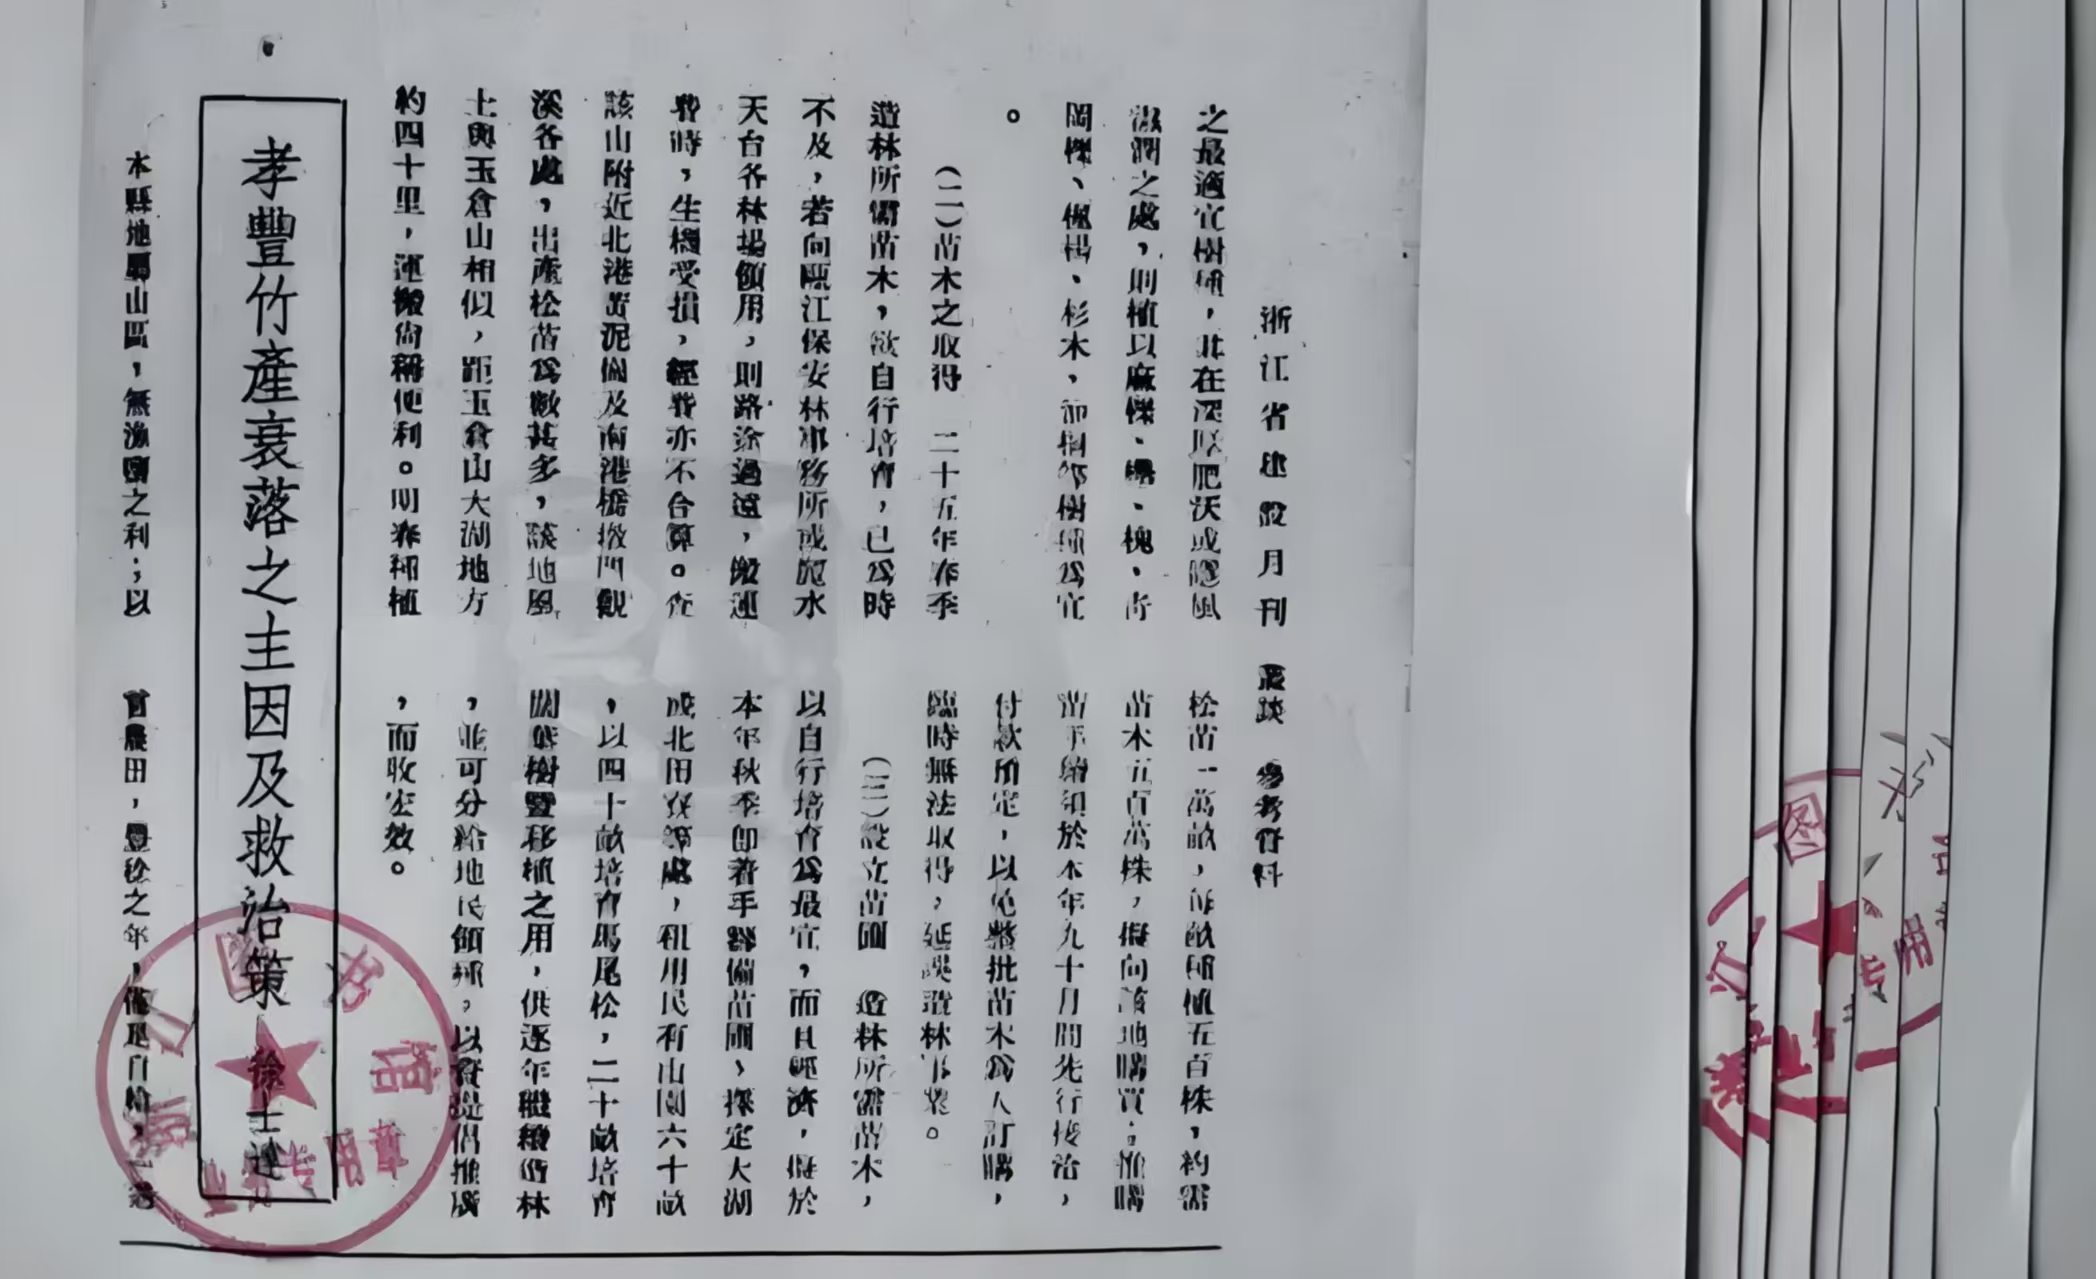 浙江省建設月刊　叢談　參考資料
之最適宜樹種，其在深厚肥沃或隱風
濕潤之處，則植以麻櫟、櫸、槐、青
岡櫟、楓楊、杉木，
。
（二）苗木之取得　二十五年春季
造林所需苗木，欲自行培育，已爲時
不及，若向甌江保安林事務所或麗水
天台各林場領用，則路途過遠，搬運
費時，生機受損，經費亦不合算。查
該山附近北港黃泥崗及南港
溪各處，出產松苗爲數甚多，該地風
土與玉倉山相似，距玉倉山大湖地方
約四十里，運搬尚稱便利。明春種植
松苗一萬畝，每畝種植五百株，約需
苗木五百萬株，擬向該地購買；惟購
苗手續須於本年九十月間先行接洽，
付款預定，以免整批苗木爲人訂購，
臨時無法取得，延誤造林事業。
（三）設立苗圃　造林所需苗木，
以自行培育爲最宜，而且經濟，擬於
本年秋季即着手籌備苗圃，擇定大湖
或北田寮等處，租用民有山園六十畝
，以四十畝培育馬尾松，二十畝培育
闊葉樹暨移植之用，供逐年繼續造林
，並可分給地民領種，以資提倡推廣
，而收宏效。
孝豐竹產衰落之主因及救治策　徐士達
本縣地屬山區，無漁鹽之利；以
言農田，豐稔之年，僅足自給，一遇
图书馆
专用章
图
江
专用